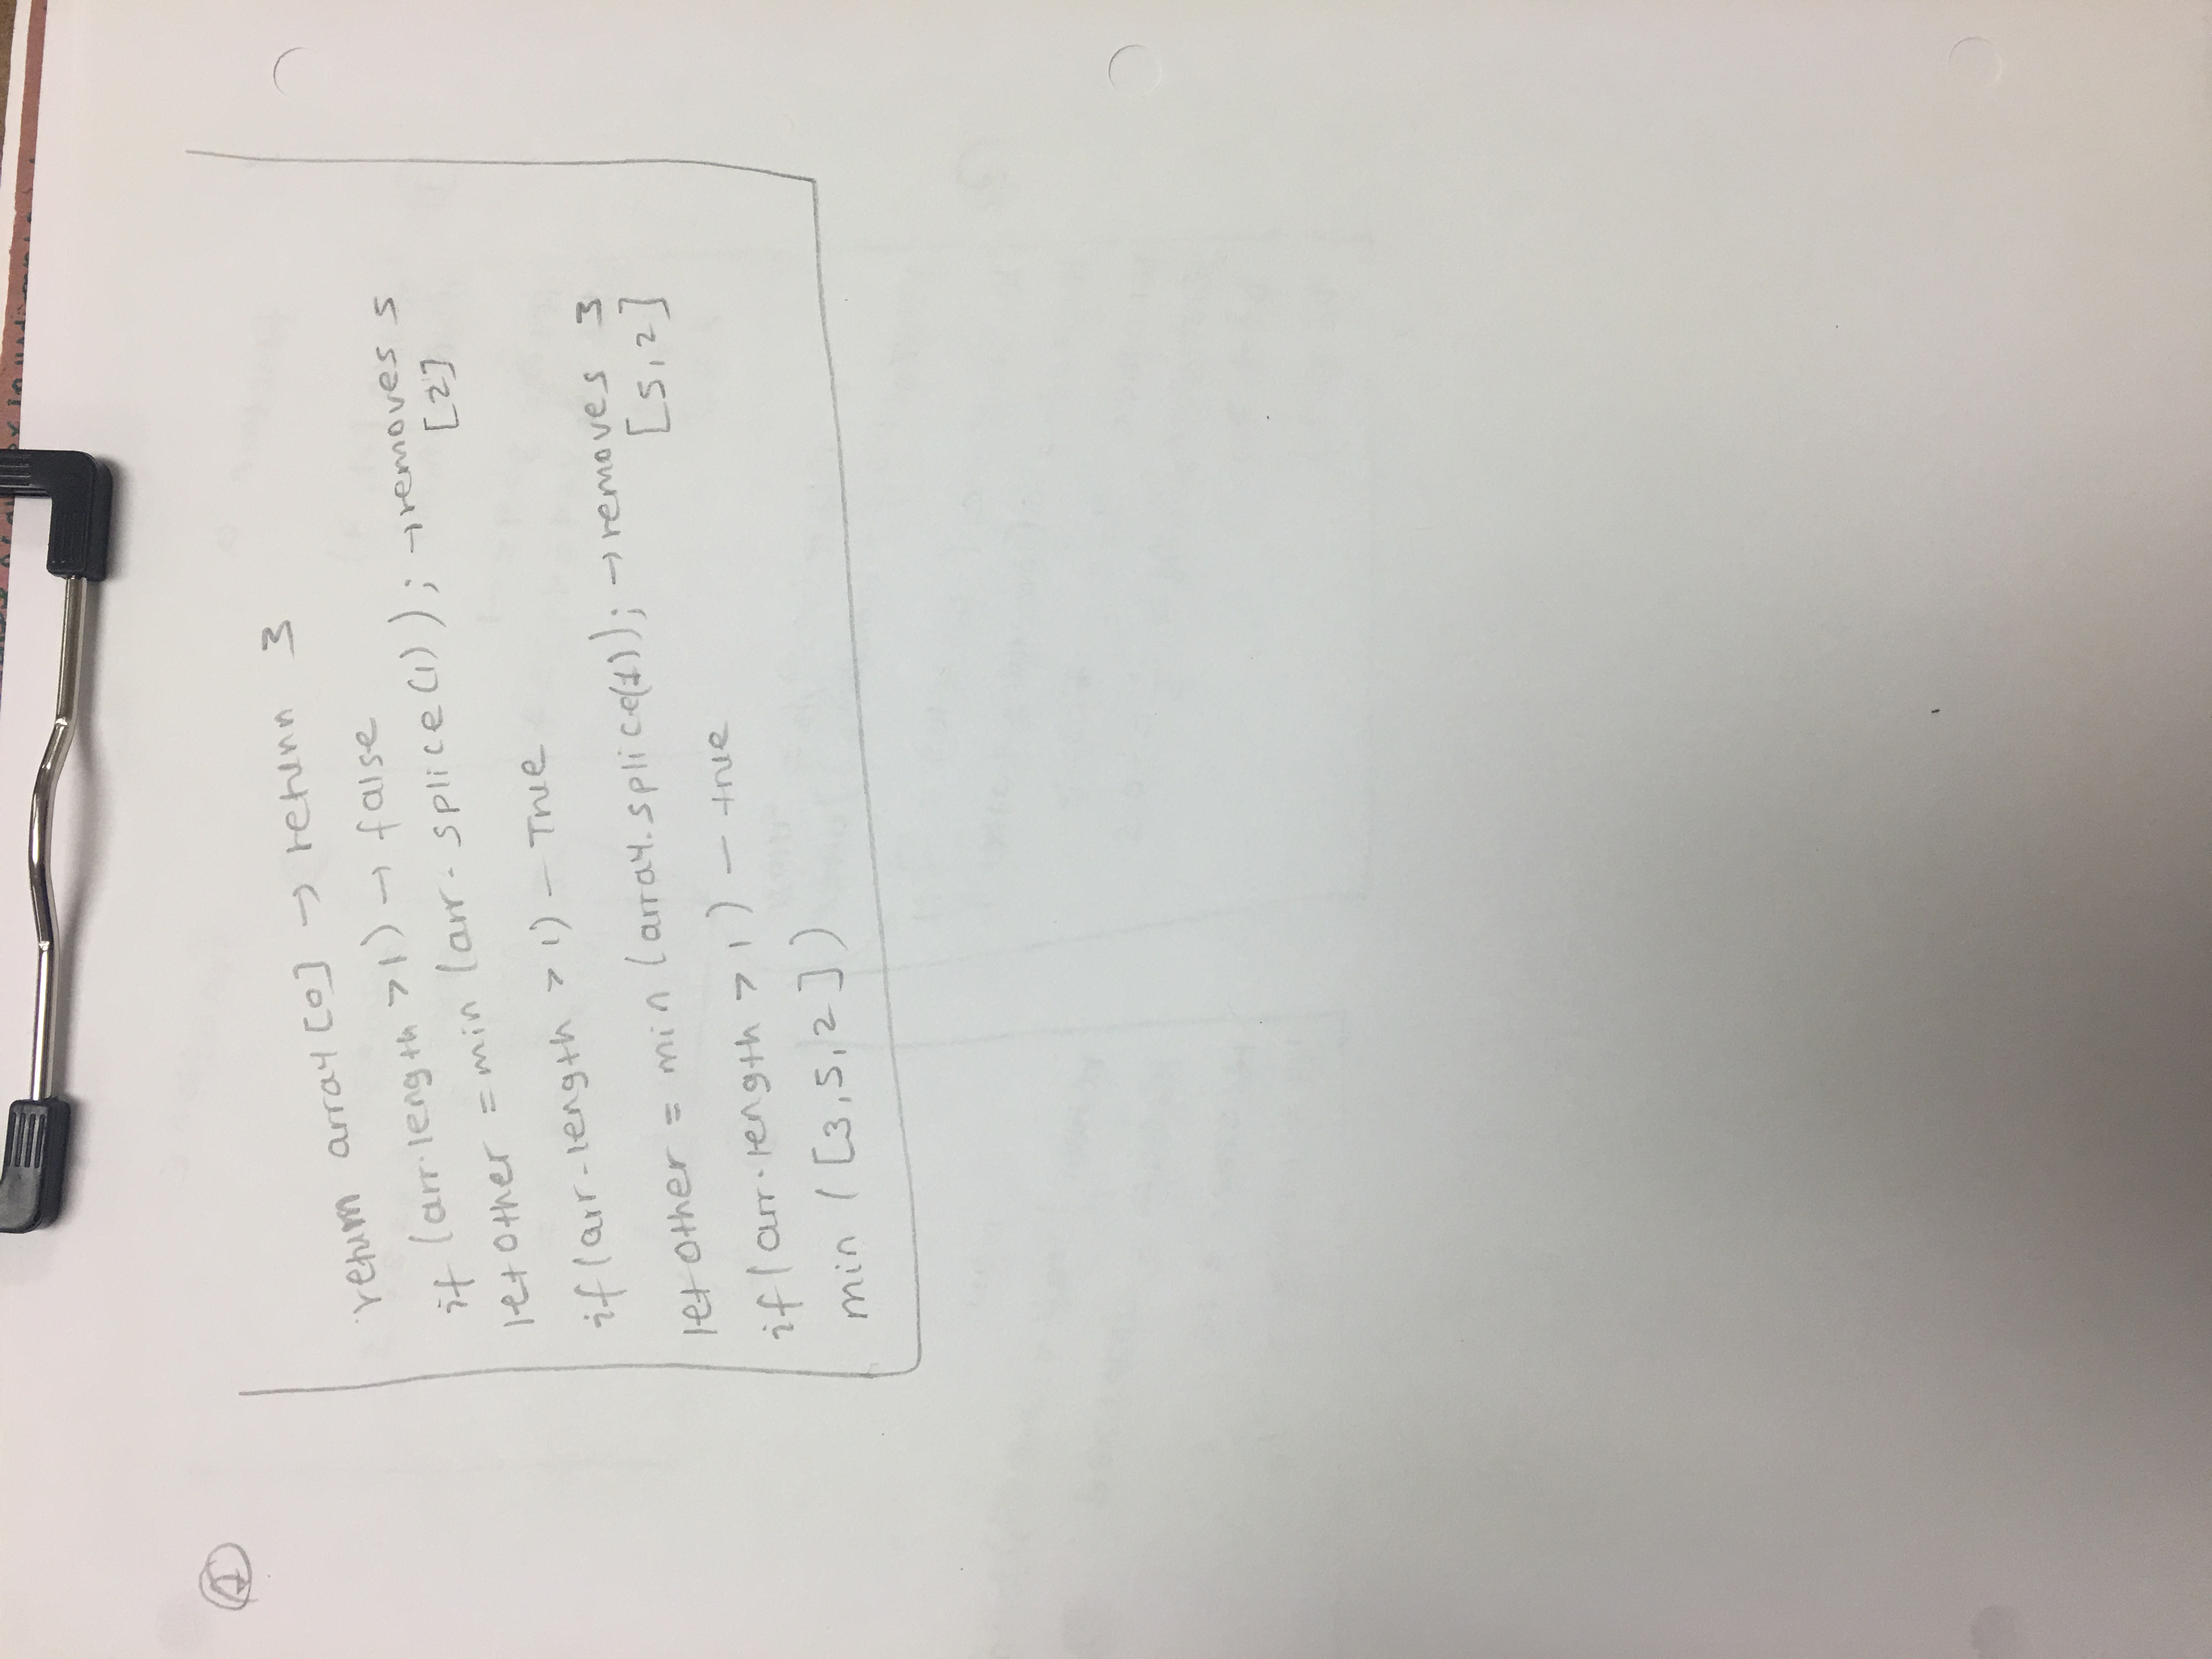 1
return array[0] → return 3
if (arr.length > 1) → false
let other = min (arr. splice(1)); → removes 5
[2]
if (arr.length > 1) - True
let other = min (array.splice(1)); → removes 3
[5,2]
if (arr.length > 1) - true
min ([3,5,2])